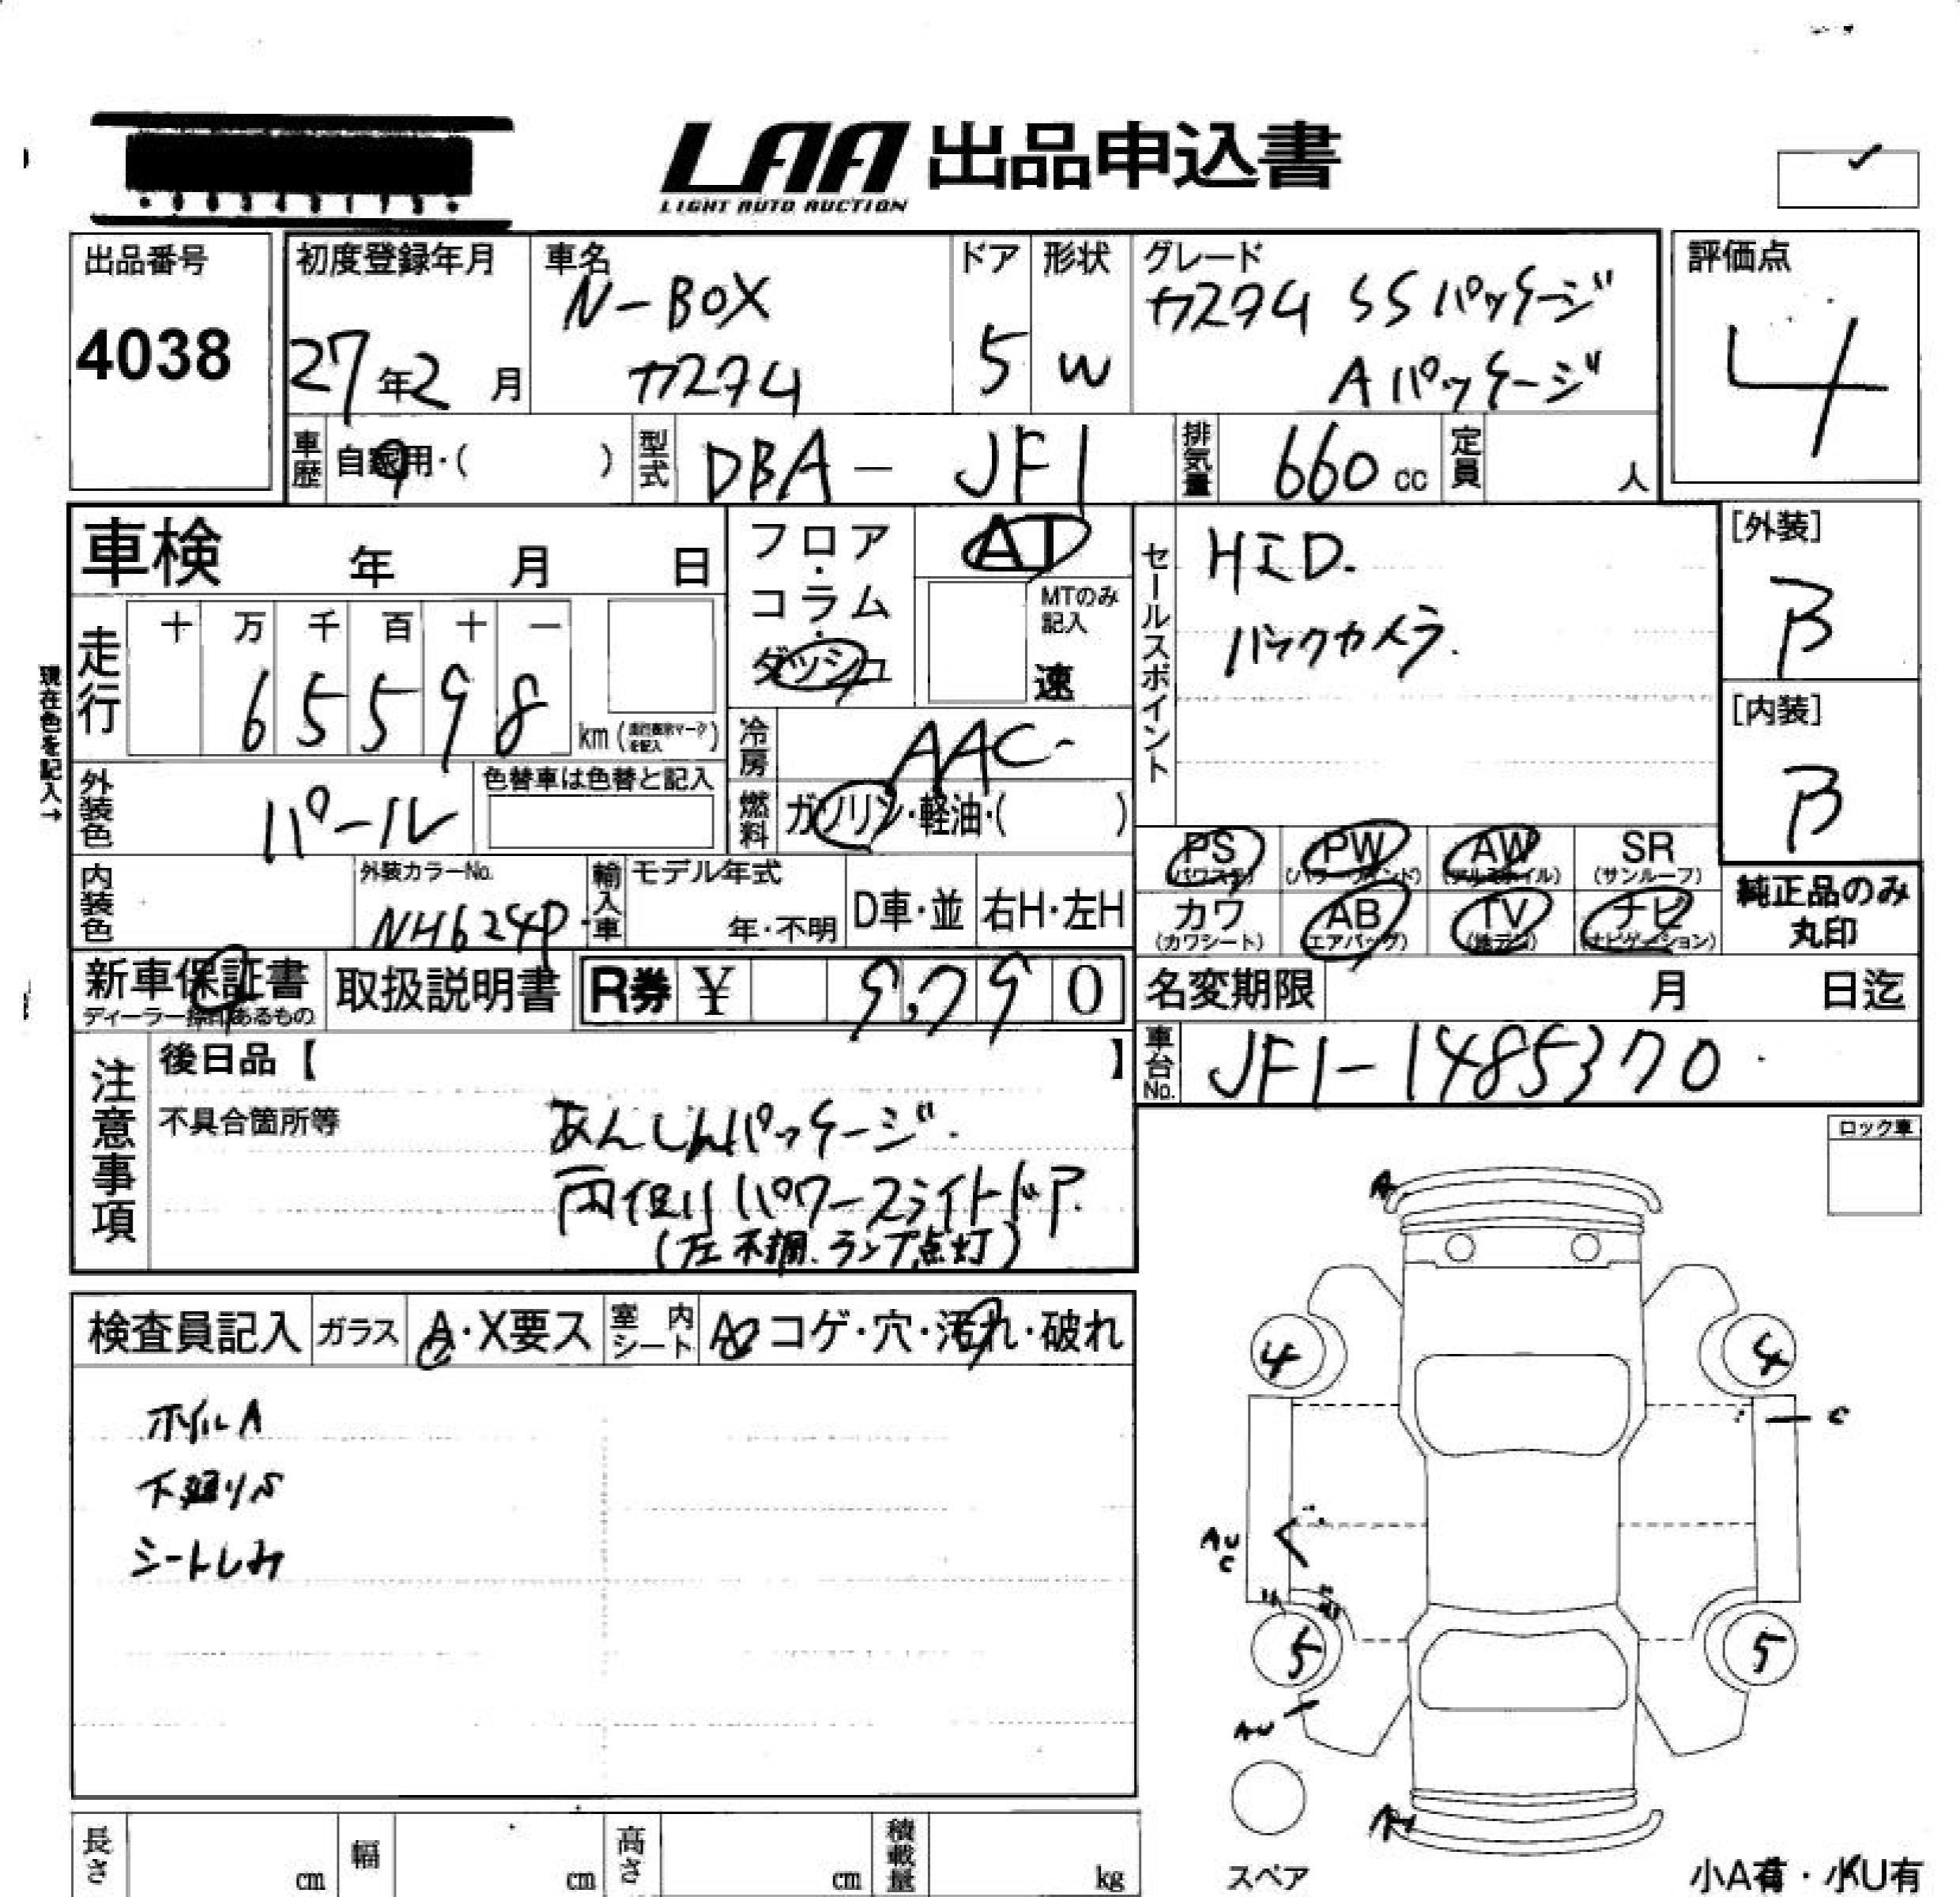 LAA 出品申込書
LIGHT AUTO AUCTION
出品番号
4038
初度登録年月
27年2月
車名
N-BOX
カスタム
ドア
5
形状
W
グレード
カスタム SSパッケージ
Aパッケージ
評価点
4
車歴 自家用・( )
型式 DBA - JF1
排気量 660cc
定員 人
車検 年 月 日
走行 十 万 千 百 十 一
65598 km
現在色を記入→
フロア・コラム・ダッシュ
AT
MTのみ記入
速
冷房 AAC
燃料 ガソリン・軽油・( )
外装色 パール
色替車は色替と記入
内装色
外装カラーNo.
NH624P
輸入車
モデル年式
年・不明
D車・並
右H・左H
セールスポイント
HID.
バックカメラ.
[外装]
B
[内装]
B
PS (パワステ)
PW (パワーウインド)
AW (アルミホイル)
SR (サンルーフ)
カワ (カワシート)
AB (エアバッグ)
TV
ナビ (ナビゲーション)
純正品のみ
丸印
新車保証書
取扱説明書
R券 ¥ 9,790
名変期限 月 日迄
車台No. JF1-1485370
注意事項
後日品【 】
不具合箇所等
あんしんパッケージ.
両側パワースライドドア.
(左不調.ランプ点灯)
ロック車
検査員記入
ガラス A・X要ス
室内シート
コゲ・穴・汚れ・破れ
ホイルA
下廻りS
シートしみ
A
4
4
C
AU
C
5
5
AU
スペア
小A有・小U有
長さ cm
幅 cm
高さ cm
積載量 kg